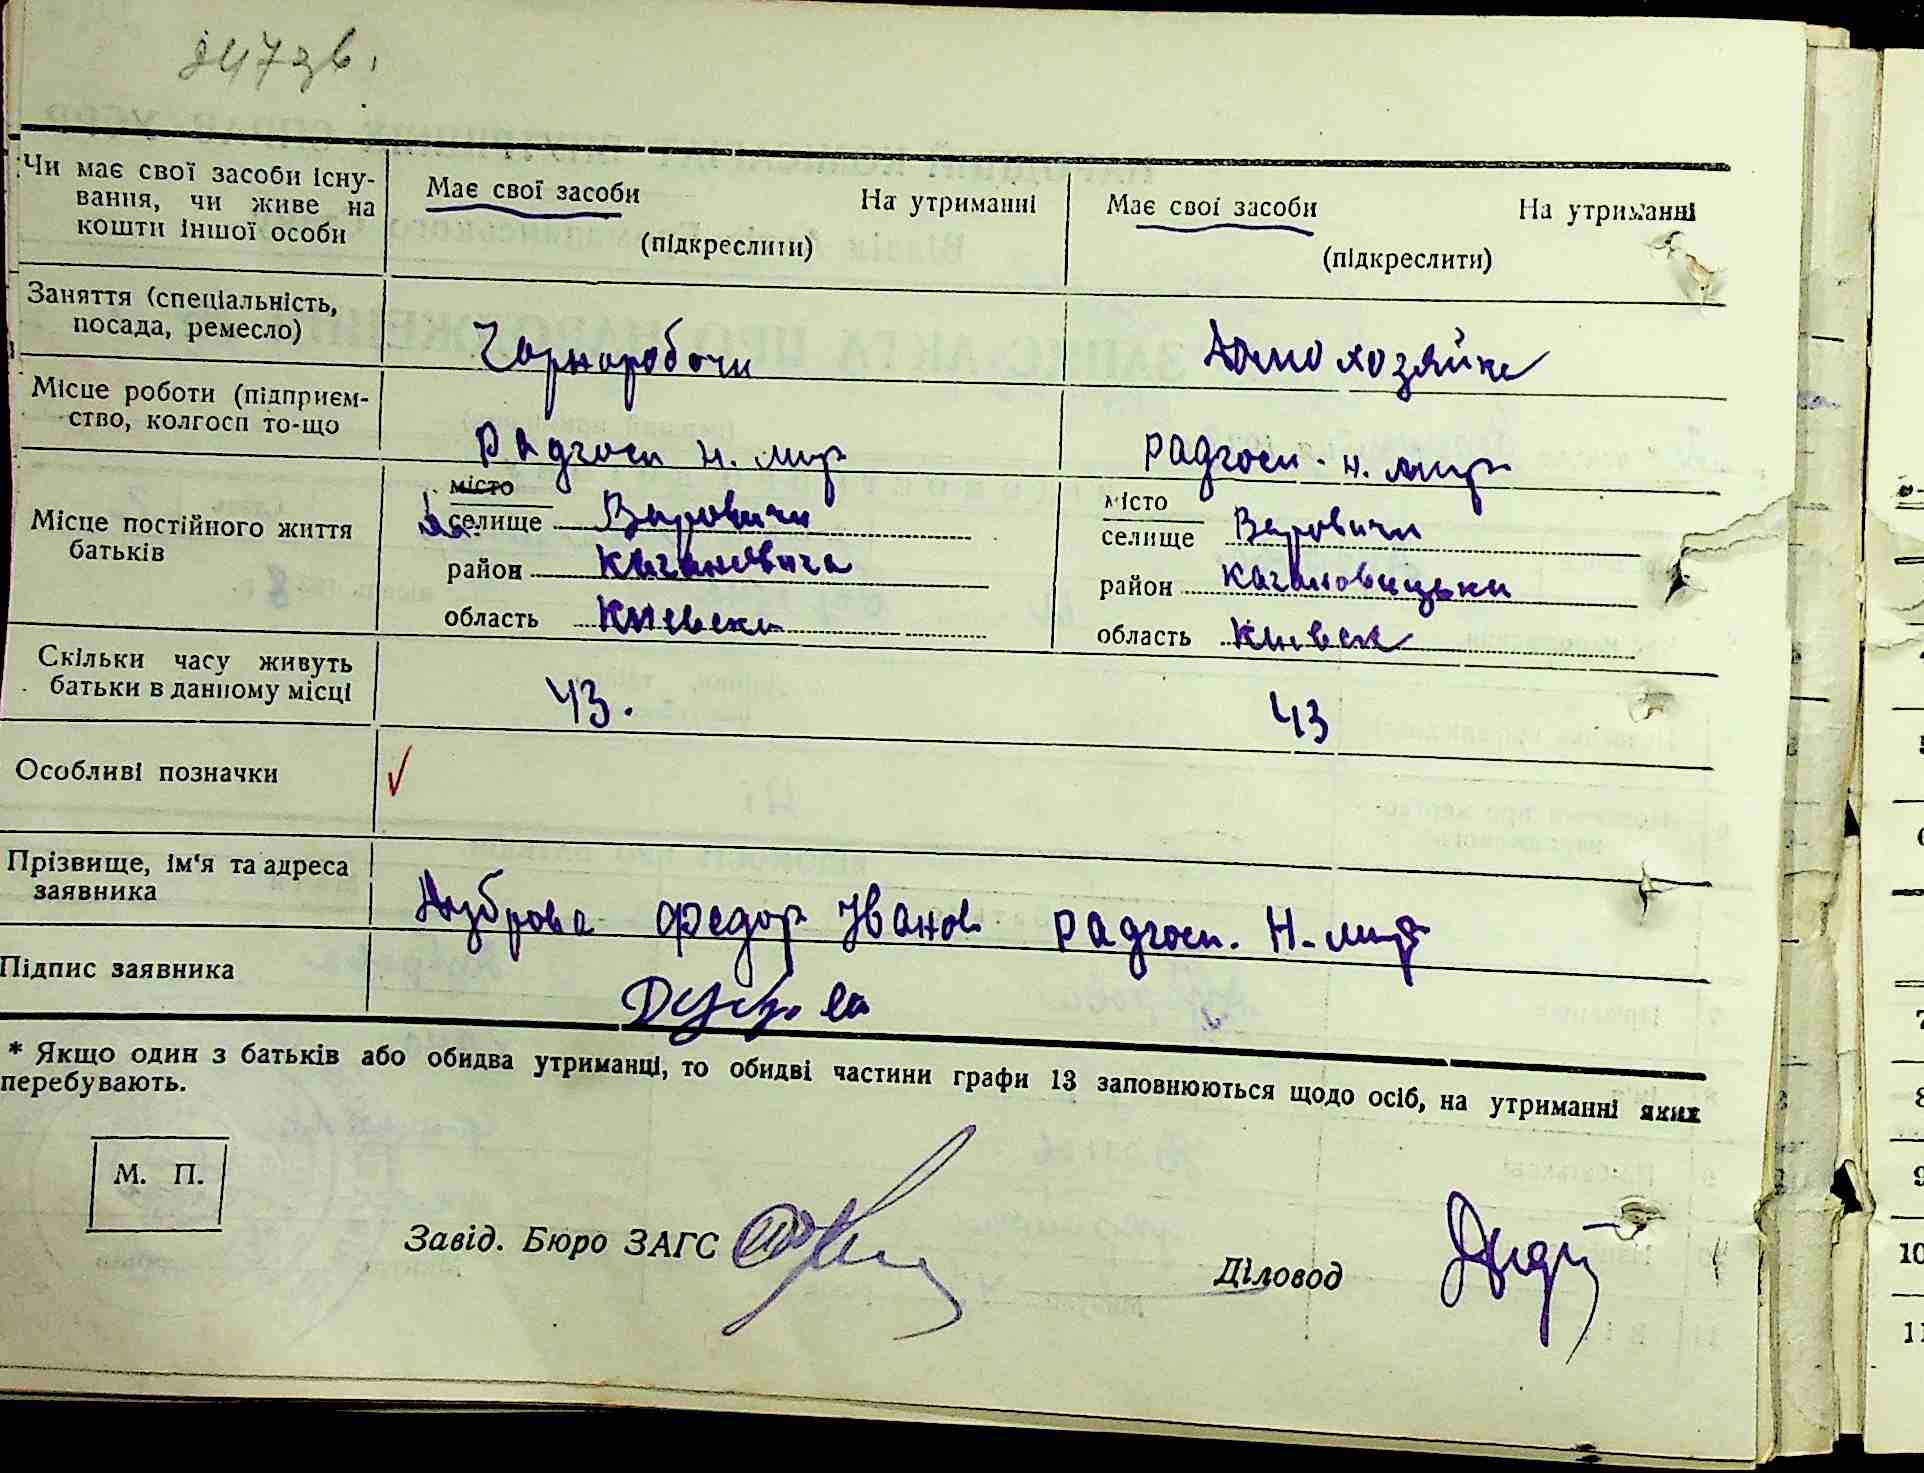 247 зв.
Чи має свої засоби існу-
вання, чи живе на
кошти іншої особи
Має свої засоби На утриманні
(підкреслити)
Має свої засоби На утриманні
(підкреслити)
Заняття (спеціальність,
посада, ремесло)
Чорноробочи
Домохозяйка
Місце роботи (підприєм-
ство, колгосп то-що
Радгосп Н. мир
Радгосп. Н. мир
Місце постійного життя
батьків
місто
селище Варовичи
район Кагановича
область Киевска
місто
селище Варовичи
район Кагановицьки
область Киевск
Скільки часу живуть
батьки в данному місці
ЧЗ.
ЧЗ
Особливі позначки
Прізвище, ім'я та адреса
заявника
Дуброва Федор Іванов Радгосп. Н. мир
Підпис заявника
Дуброва
* Якщо один з батьків або обидва утриманці, то обидві частини графи 13 заповнюються щодо осіб, на утриманні яких
перебувають.
М. П.
Завід. Бюро ЗАГС
Діловод